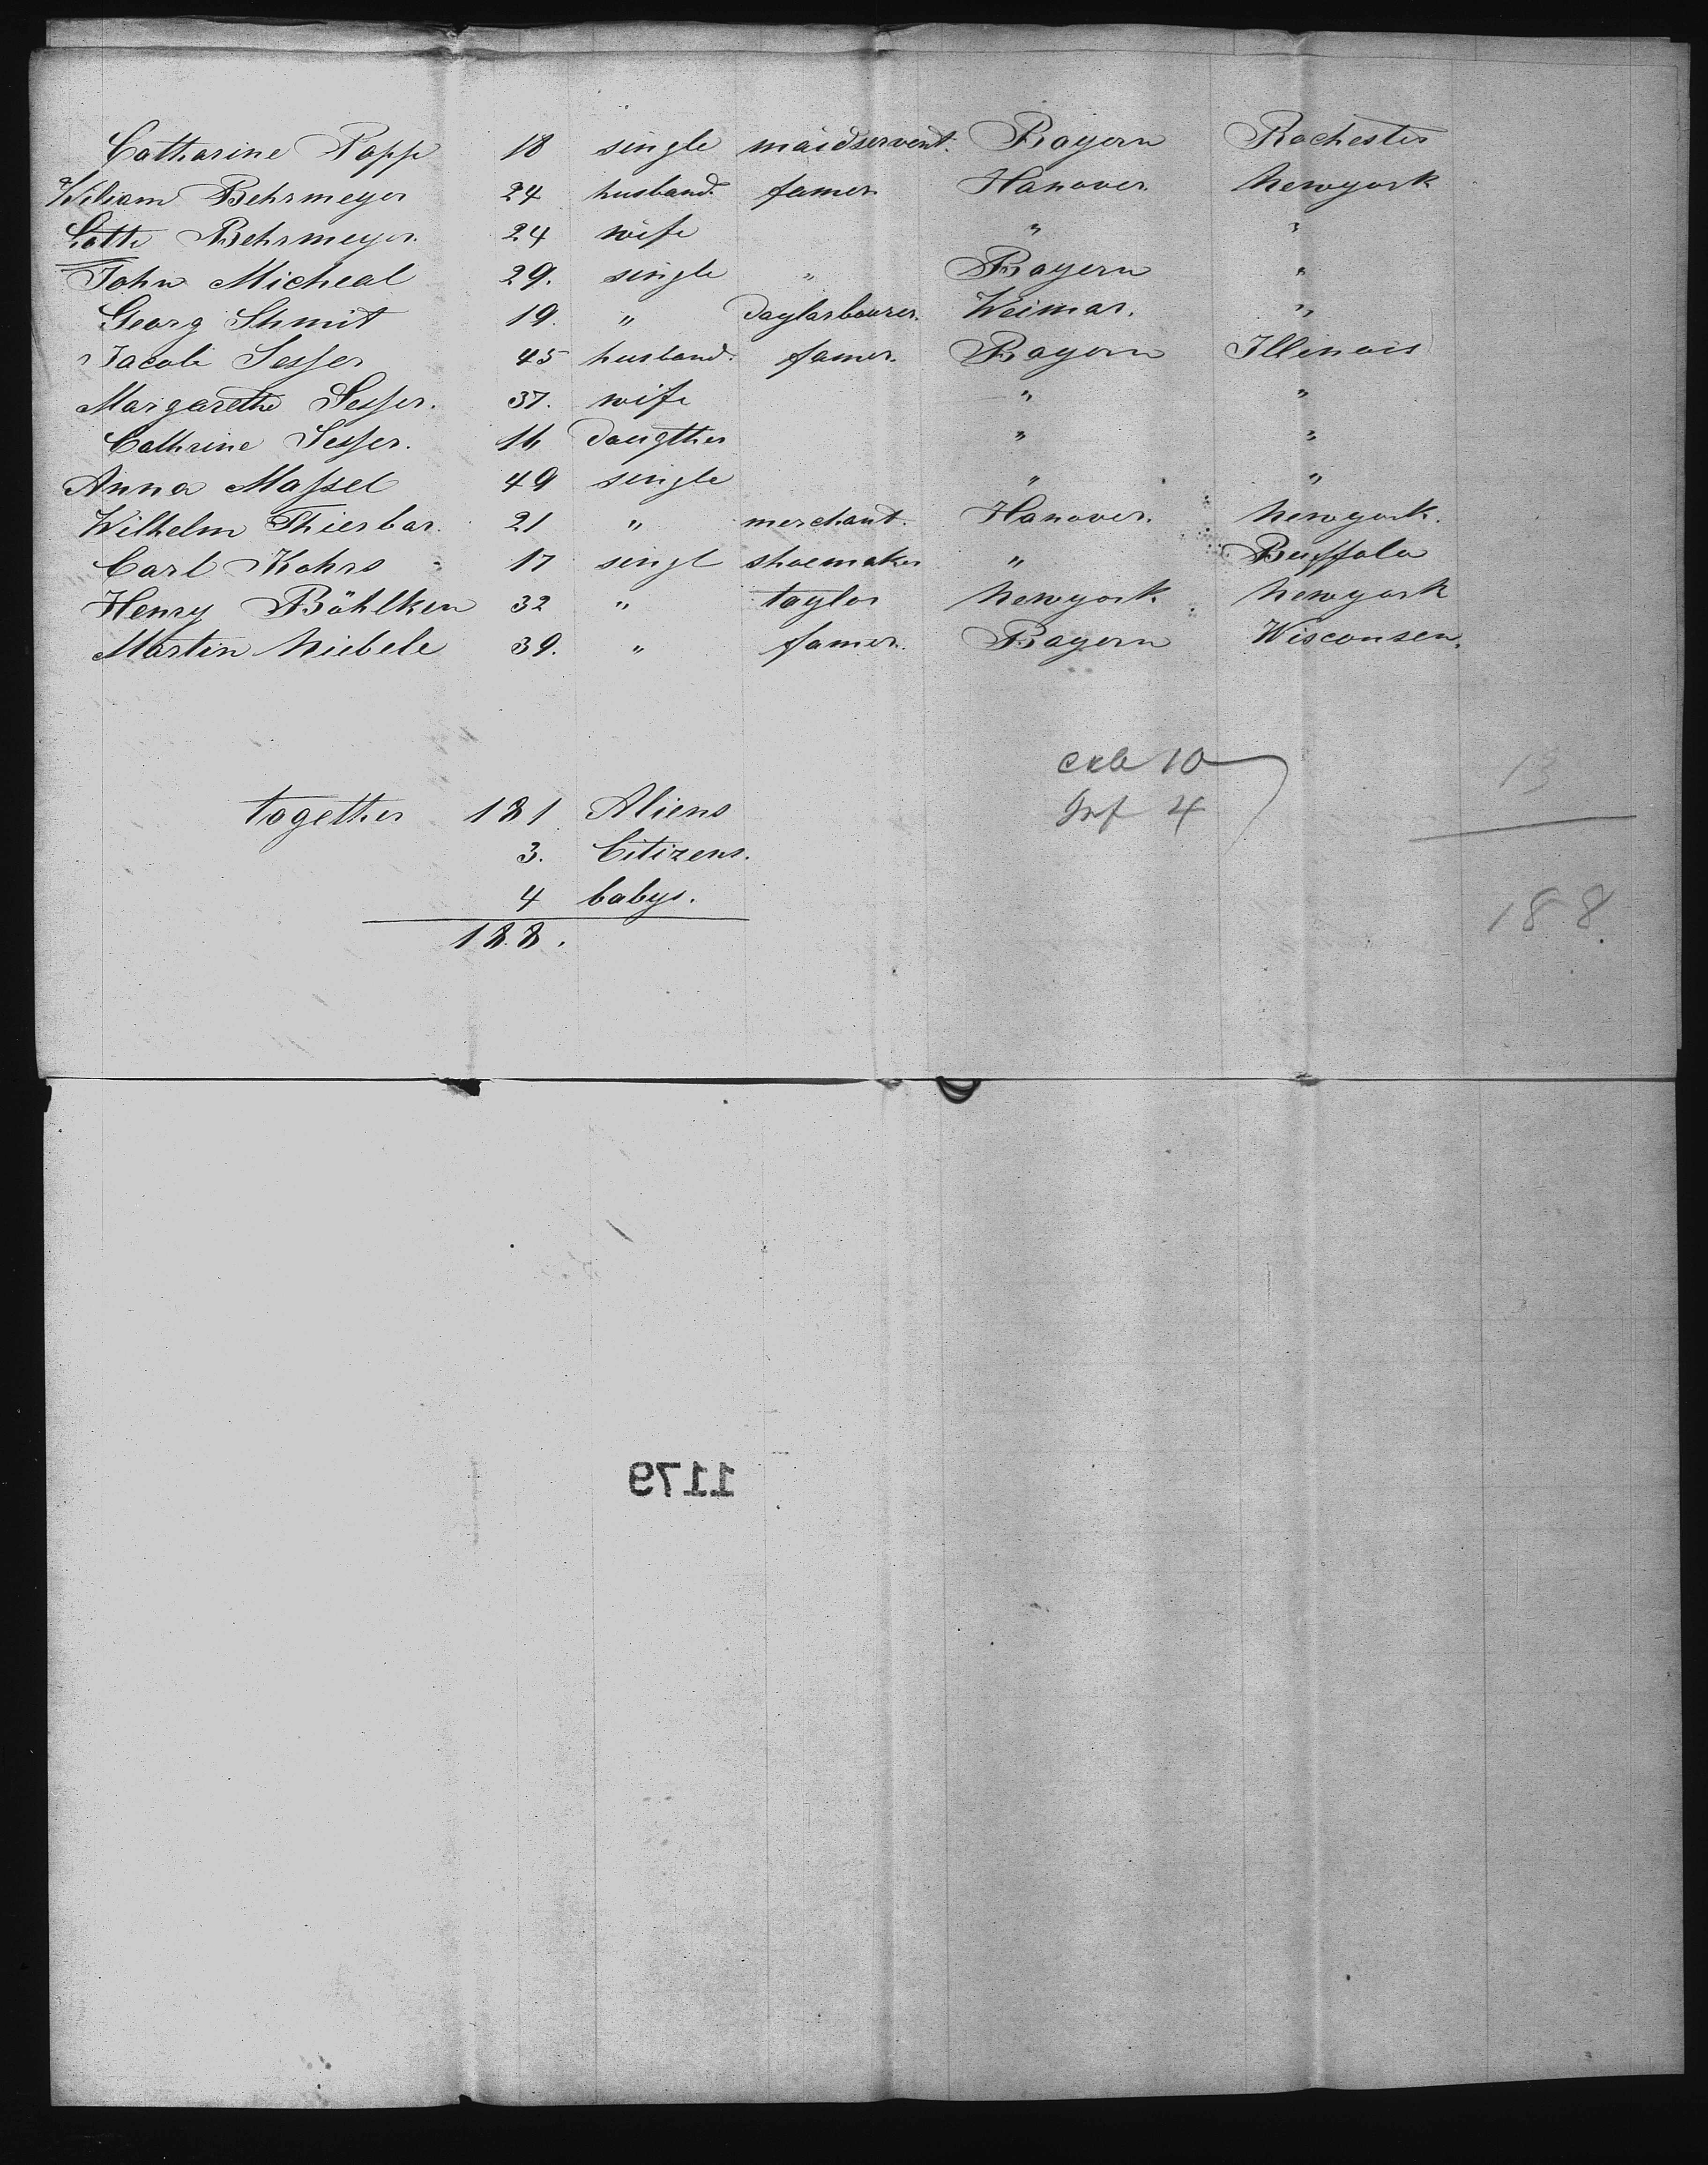 Catharine Popp 18 single maidservent. Bayern Rochester
Wiliam Behrmeyer 24 husband. famer Hanover Newyork
Lotte Behrmeyer. 24 wife " "
John Micheal 29. single " Bayern "
Georg Shmit 19. " Daylarbourer. Weimar. "
Jacob Sesser 45 husband. famer. Bayern Illinois
Margarethe Sesser. 37. wife " "
Cathrine Sesser. 16 Daugther " "
Anna Massel 49 single " "
Wilhelm Thierbar. 21 " merchant. Hanover. Newyork.
Carl Kohrs 17 singl shoemaker " Buffalo
Henry Böhlken 32 " taylor Newyork Newyork
Martin Niebele 39. " famer. Bayern Wisconsen.
10
13
together 181 Aliens Inf 4
3. Citizens.
4 babys. 188.
188.
1179